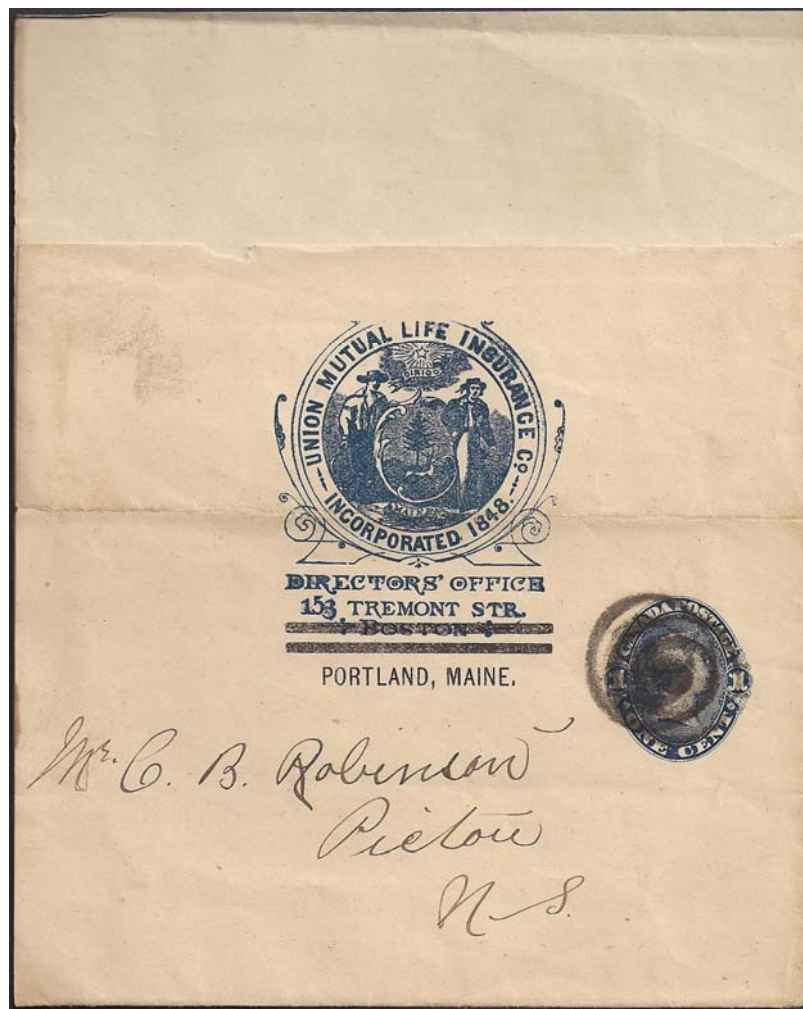 UNION MUTUAL LIFE INSURANCE Co.
INCORPORATED 1848.
DIRIGO
MAINE
DIRECTORS' OFFICE
153 TREMONT STR.
BOSTON
PORTLAND, MAINE.
CANADA POSTAGE
1 1
ONE CENT
Mr. C. B. Robinson
Pictou
N. S.